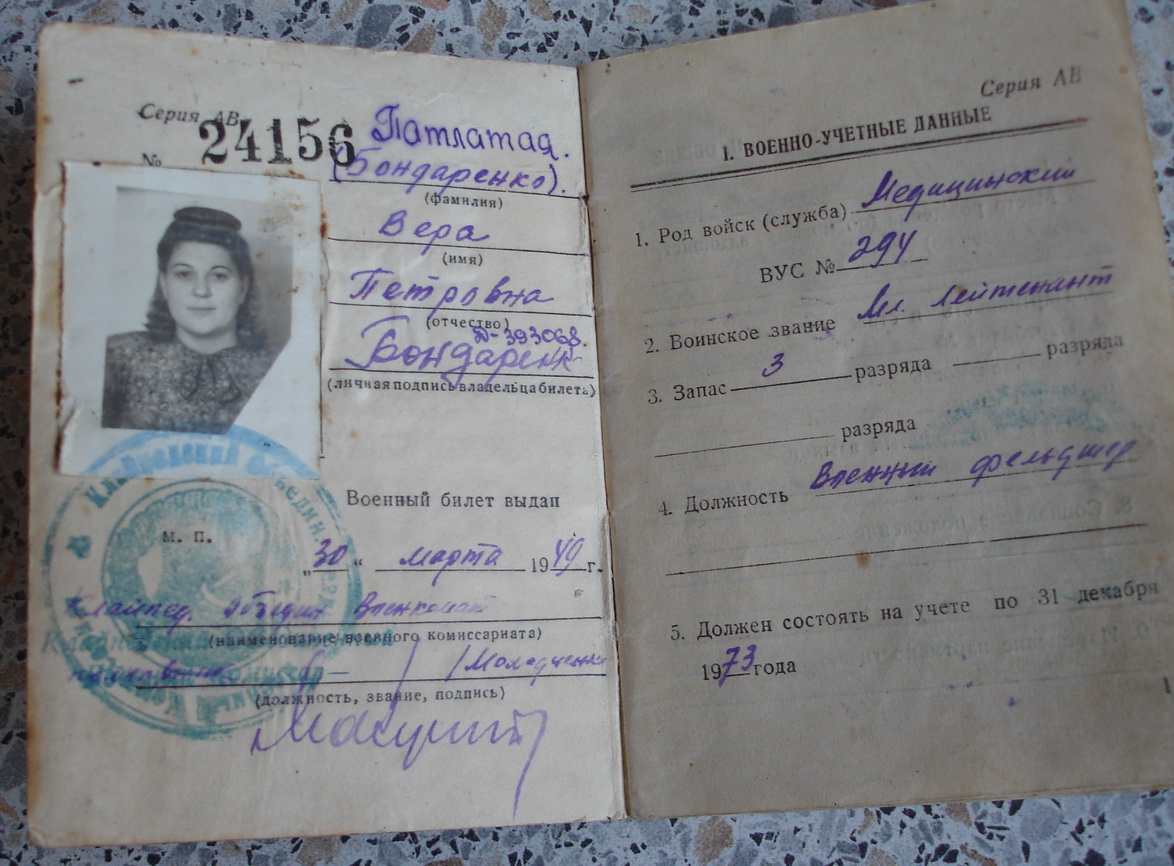 Серия АВ
№ 24156
Патлатая.
(Бондаренко).
(фамилия)
Вера
(имя)
Петровна
(отчество)
№-393068.
Бондаренк
(личная подпись владельца билета)
Военный билет выдан
м. п.
„30“ марта 1949 г.
Клайпед. объедин Военкомат
(наименование военного комиссариата)
/Молодченко
(должность, звание, подпись)
Серия АВ
I. ВОЕННО-УЧЕТНЫЕ ДАННЫЕ
1. Род войск (служба) Медицинский
ВУС № 294
2. Воинское звание Мл. лейтенант
3. Запас 3 разряда разряда
разряда
4. Должность Военный фельдшер
5. Должен состоять на учете по 31 декабря
1973 года
1